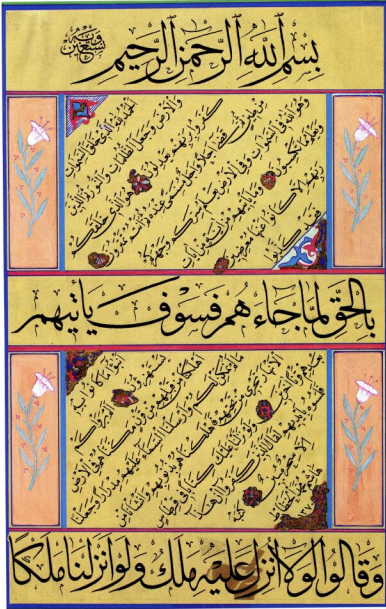 بسم الله الرحمن الرحيم
وبه نستعين
الحمد لله الذي خلق السموات
والارض وجعل الظلمات والنور ثم الذين
كفروا بربهم يعدلون هو الذي خلقكم
من طين ثم قضى اجلا واجل مسمى عنده ثم انتم تمترون
وهو الله في السموات وفي الارض يعلم سركم وجهركم
ويعلم ما تكسبون وما تأتيهم من آية من آيات
ربهم الا كانوا عنها معرضين
فقد كذبوا
بالحق لما جاءهم فسوف يأتيهم
انبؤا ما كانوا به
يستهزؤن الم يروا كم
اهلكنا من قبلهم من قرن مكناهم في الارض
ما لم نمكن لكم وارسلنا السماء عليهم مدرارا وجعلنا
الانهار تجري من تحتهم فاهلكناهم بذنوبهم وانشأنا من
بعدهم قرنا آخرين ولو نزلنا عليك كتابا في قرطاس
فلمسوه بايديهم لقال الذين كفروا ان هذا
الا سحر مبين
وقالوا لولا انزل عليه ملك ولو انزلنا ملكا